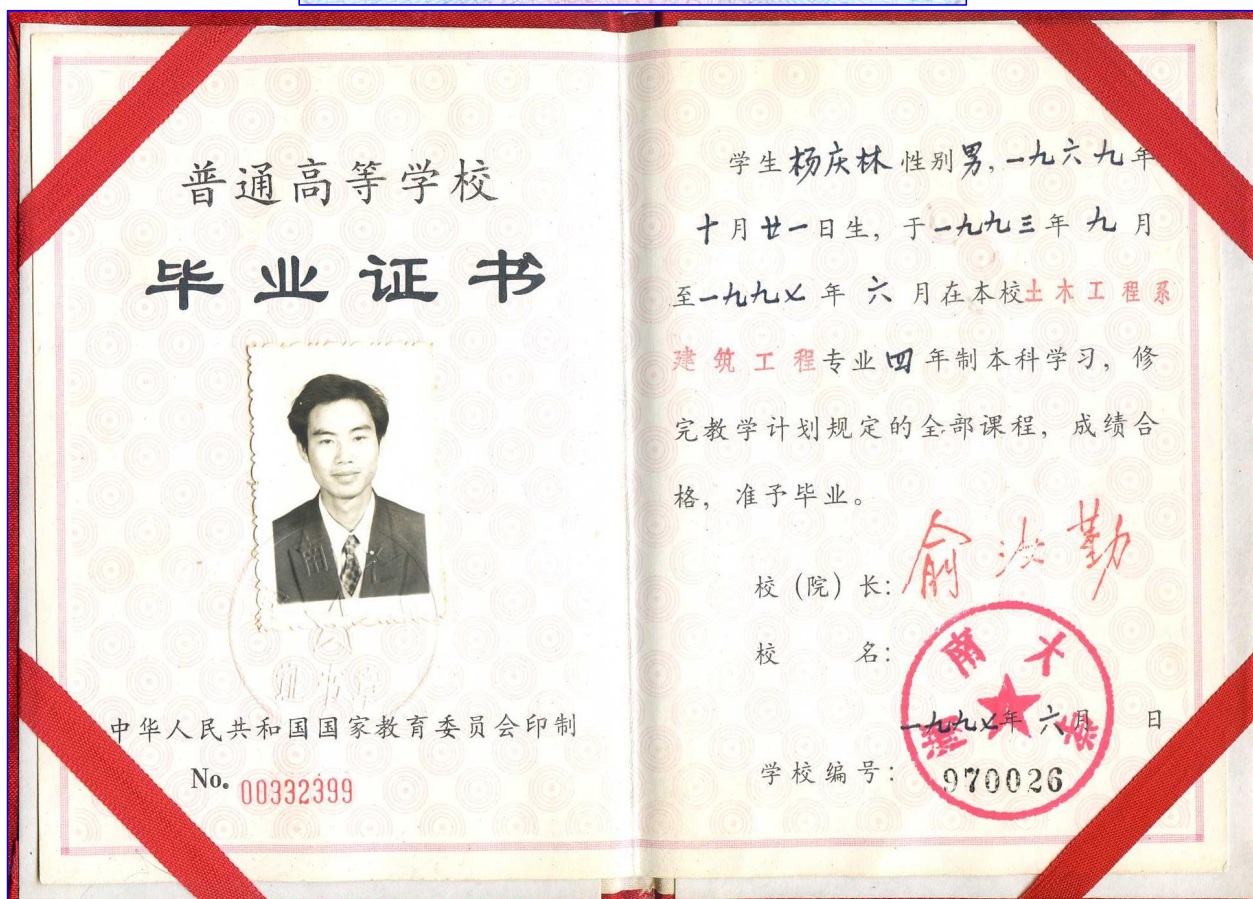 普通高等学校
毕业证书
中华人民共和国国家教育委员会印制
No. 00332399
学生杨庆林性别男,一九六九年
十月廿一日生,于一九九三年九月
至一九九七年六月在本校土木工程系
建筑工程专业四年制本科学习,修
完教学计划规定的全部课程,成绩合
格,准予毕业。
校(院)长:俞汝勤
校名:
湖南大学
一九九七年六月 日
学校编号:970026